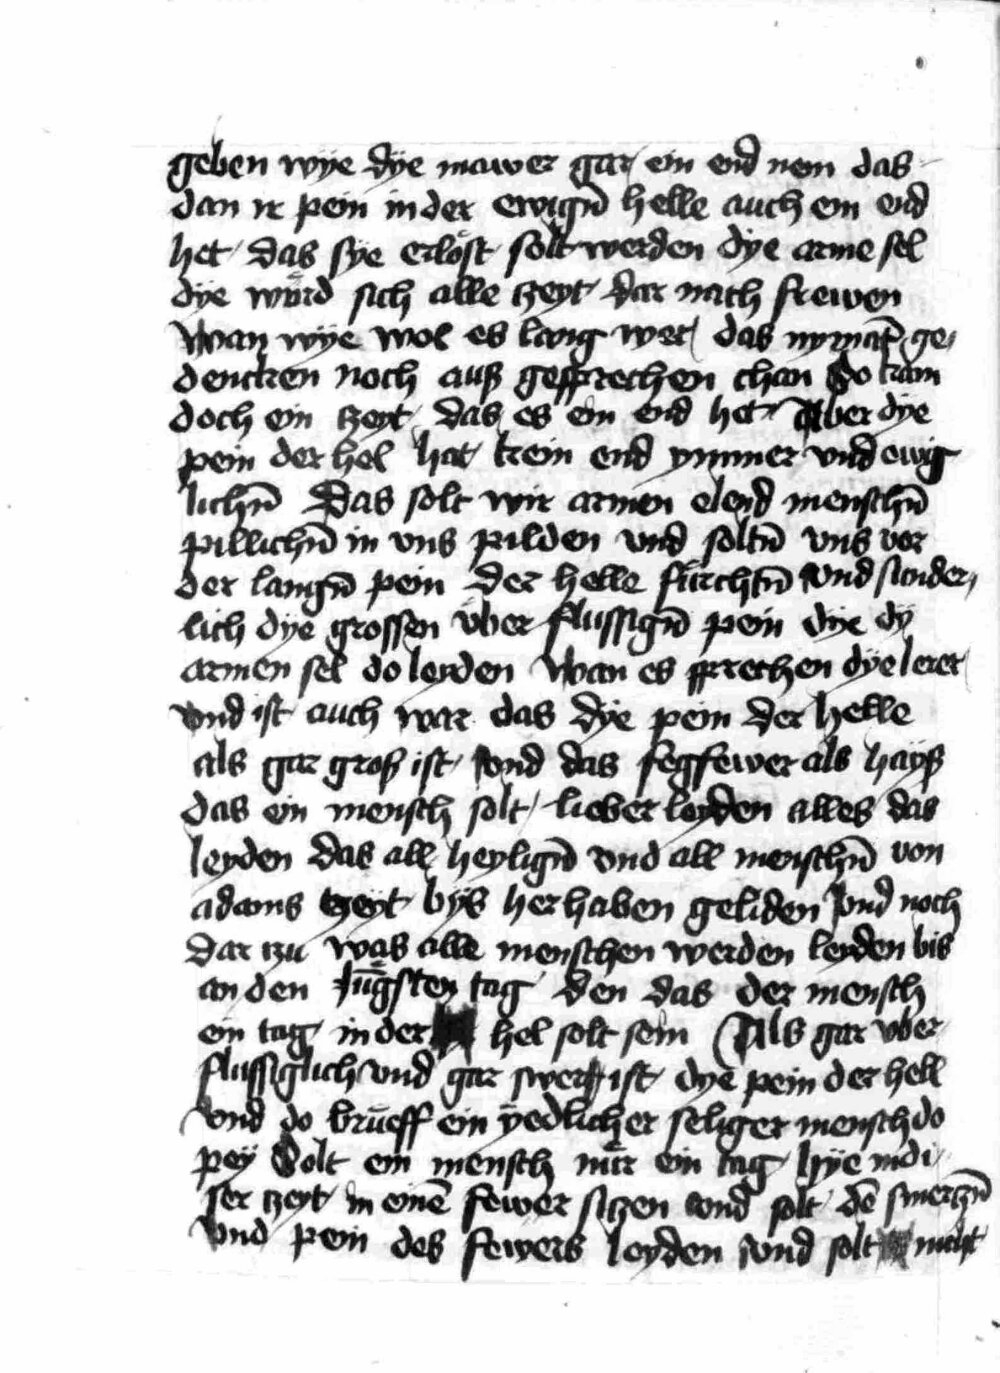 geben wÿe dÿe mawer gar ein end nem das
dan ir pein in der ewign̄ helle auch ein end
het das sÿe erlöst solt werden dÿe arme sel
dÿe würd sich alle tzeyt dar nach frewen
Wan wÿe wol es lang wer das nymāt ge
dencken noch auß gesprechen chan So kam
doch ein tzeyt das es ein end het Aber dÿe
pein der hel hat kein end ymmer vnd ewig
lichn̄ Das solt wir armen elend menschn̄
pillichn̄ in vns pilden vnd soltn̄ vns vor
der langn̄ pein der helle fürchtn̄ vnd sunder
lich dÿe grossen über flussign̄ pein dÿe dÿ
armen sel do leyden Wan es sprechen dÿe lerer
vnd ist auch war das dÿe pein der helle
als gar groß ist vnd das fegfewer als hayß
das ein mensch solt lieber leyden alles das
leyden das all heylign̄ vnd all menschn̄ von
adams tzeyt bÿs her haben geliden vnd noch
dar tzu was alle menschen werden leyden bis
an den Jüngsten tag den das der mensch
ein tag in der hel solt sein Als gar vber
flussiglich vnd gar swer ist dÿe pein der hell
vnd do brüeff ein ÿedlicher seliger mensch do
peÿ Solt ein mensch nür ein tag hÿe in di
ser tzeyt in einē fewer sitzen vnd solt dē smertzn̄
vnd pein des fewers leyden vnd solt nicht